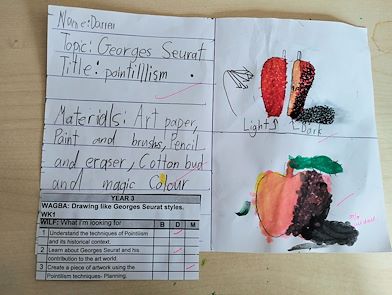 Name: Darren
Topic: Georges Seurat
Title: pointillism
Materials: Art paper,
Paint and brushs, Pencil
and eraser, Cotton bud
and magic Colour
YEAR 3
WAGBA: Drawing like Georges Seurat styles.
WK1
WILF: What I'm looking for B D M
1 Understand the techniques of Pointilism
and its historical context.
2 Learn about Georges Seurat and his
contribution to the art world.
3 Create a piece of artwork using the
Pointilism techniques- Planning.
Light Dark